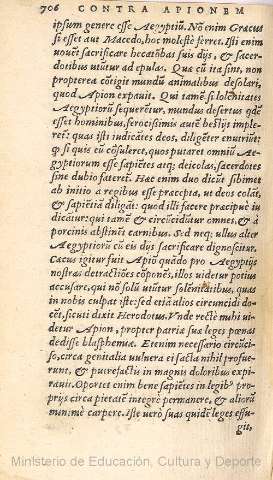 706 CONTRA APIONEM
ipsum genere esse Aegyptiũ. Nõ enim Græcus
si esset aut Macedo, hoc molestè ferret. Isti enim
uouẽt sacrificare hecatõbas suis dijs, & sacer-
dotibus utũtur ad epulas. Quæ cũ ita sint, non
propterea cõtigit mundũ animalibus desolari,
quod Apion expauit. Qui tamẽ si solẽnitates
Aegyptiorũ sequerẽtur, mundus desertus qdẽ
esset hominibus, ferocissimis autẽ bestijs imple-
ret: quas isti iudicãtes deos, diligẽter enutriũt:
& si quis eũ cõsuleret, quos putaret omniũ Ae-
gyptiorum esse sapiẽtes atq; deicolas, sacerdotes
sine dubio fateret. Hæc enim duo dicũt sibimet
ab initio à regibus esse præcepta, ut deos colãt,
& sapiẽtiã diligãt: quod illi facere præcipuè iu
dicãtur: qui tamẽ & circũcidũtur omnes, & à
porcinis abstinẽt carnibus. Sed neq; ullus alter
Aegyptiorũ cũ eis dijs sacrificare dignoscitur.
Cæcus igitur fuit Apiõ quãdo pro Aegyptijs
nostras detractiões cõponẽs, illos uidetur potius
accusare, qui nõ solũ utũtur solẽnitatibus, quas
in nobis culpat iste: sed etiã alios circumcidi do-
cẽt, sicuti dixit Herodotus. Vnde rectè mihi ui-
detur Apion, propter patriæ suæ leges pœnas
dedisse blasphemiæ. Etenim necessario circũci-
so, circa genitalia uulnera ei facta nihil profue-
runt, & putrefactu in magnis doloribus expi-
rauit. Oportet enim benè sapiẽtes in legib. pro-
prijs circa pietatẽ integrè permanere, & aliorũ
minimè carpere. Iste uerò suas quidẽ leges effu-
git,
Ministerio de Educación, Cultura y Deporte